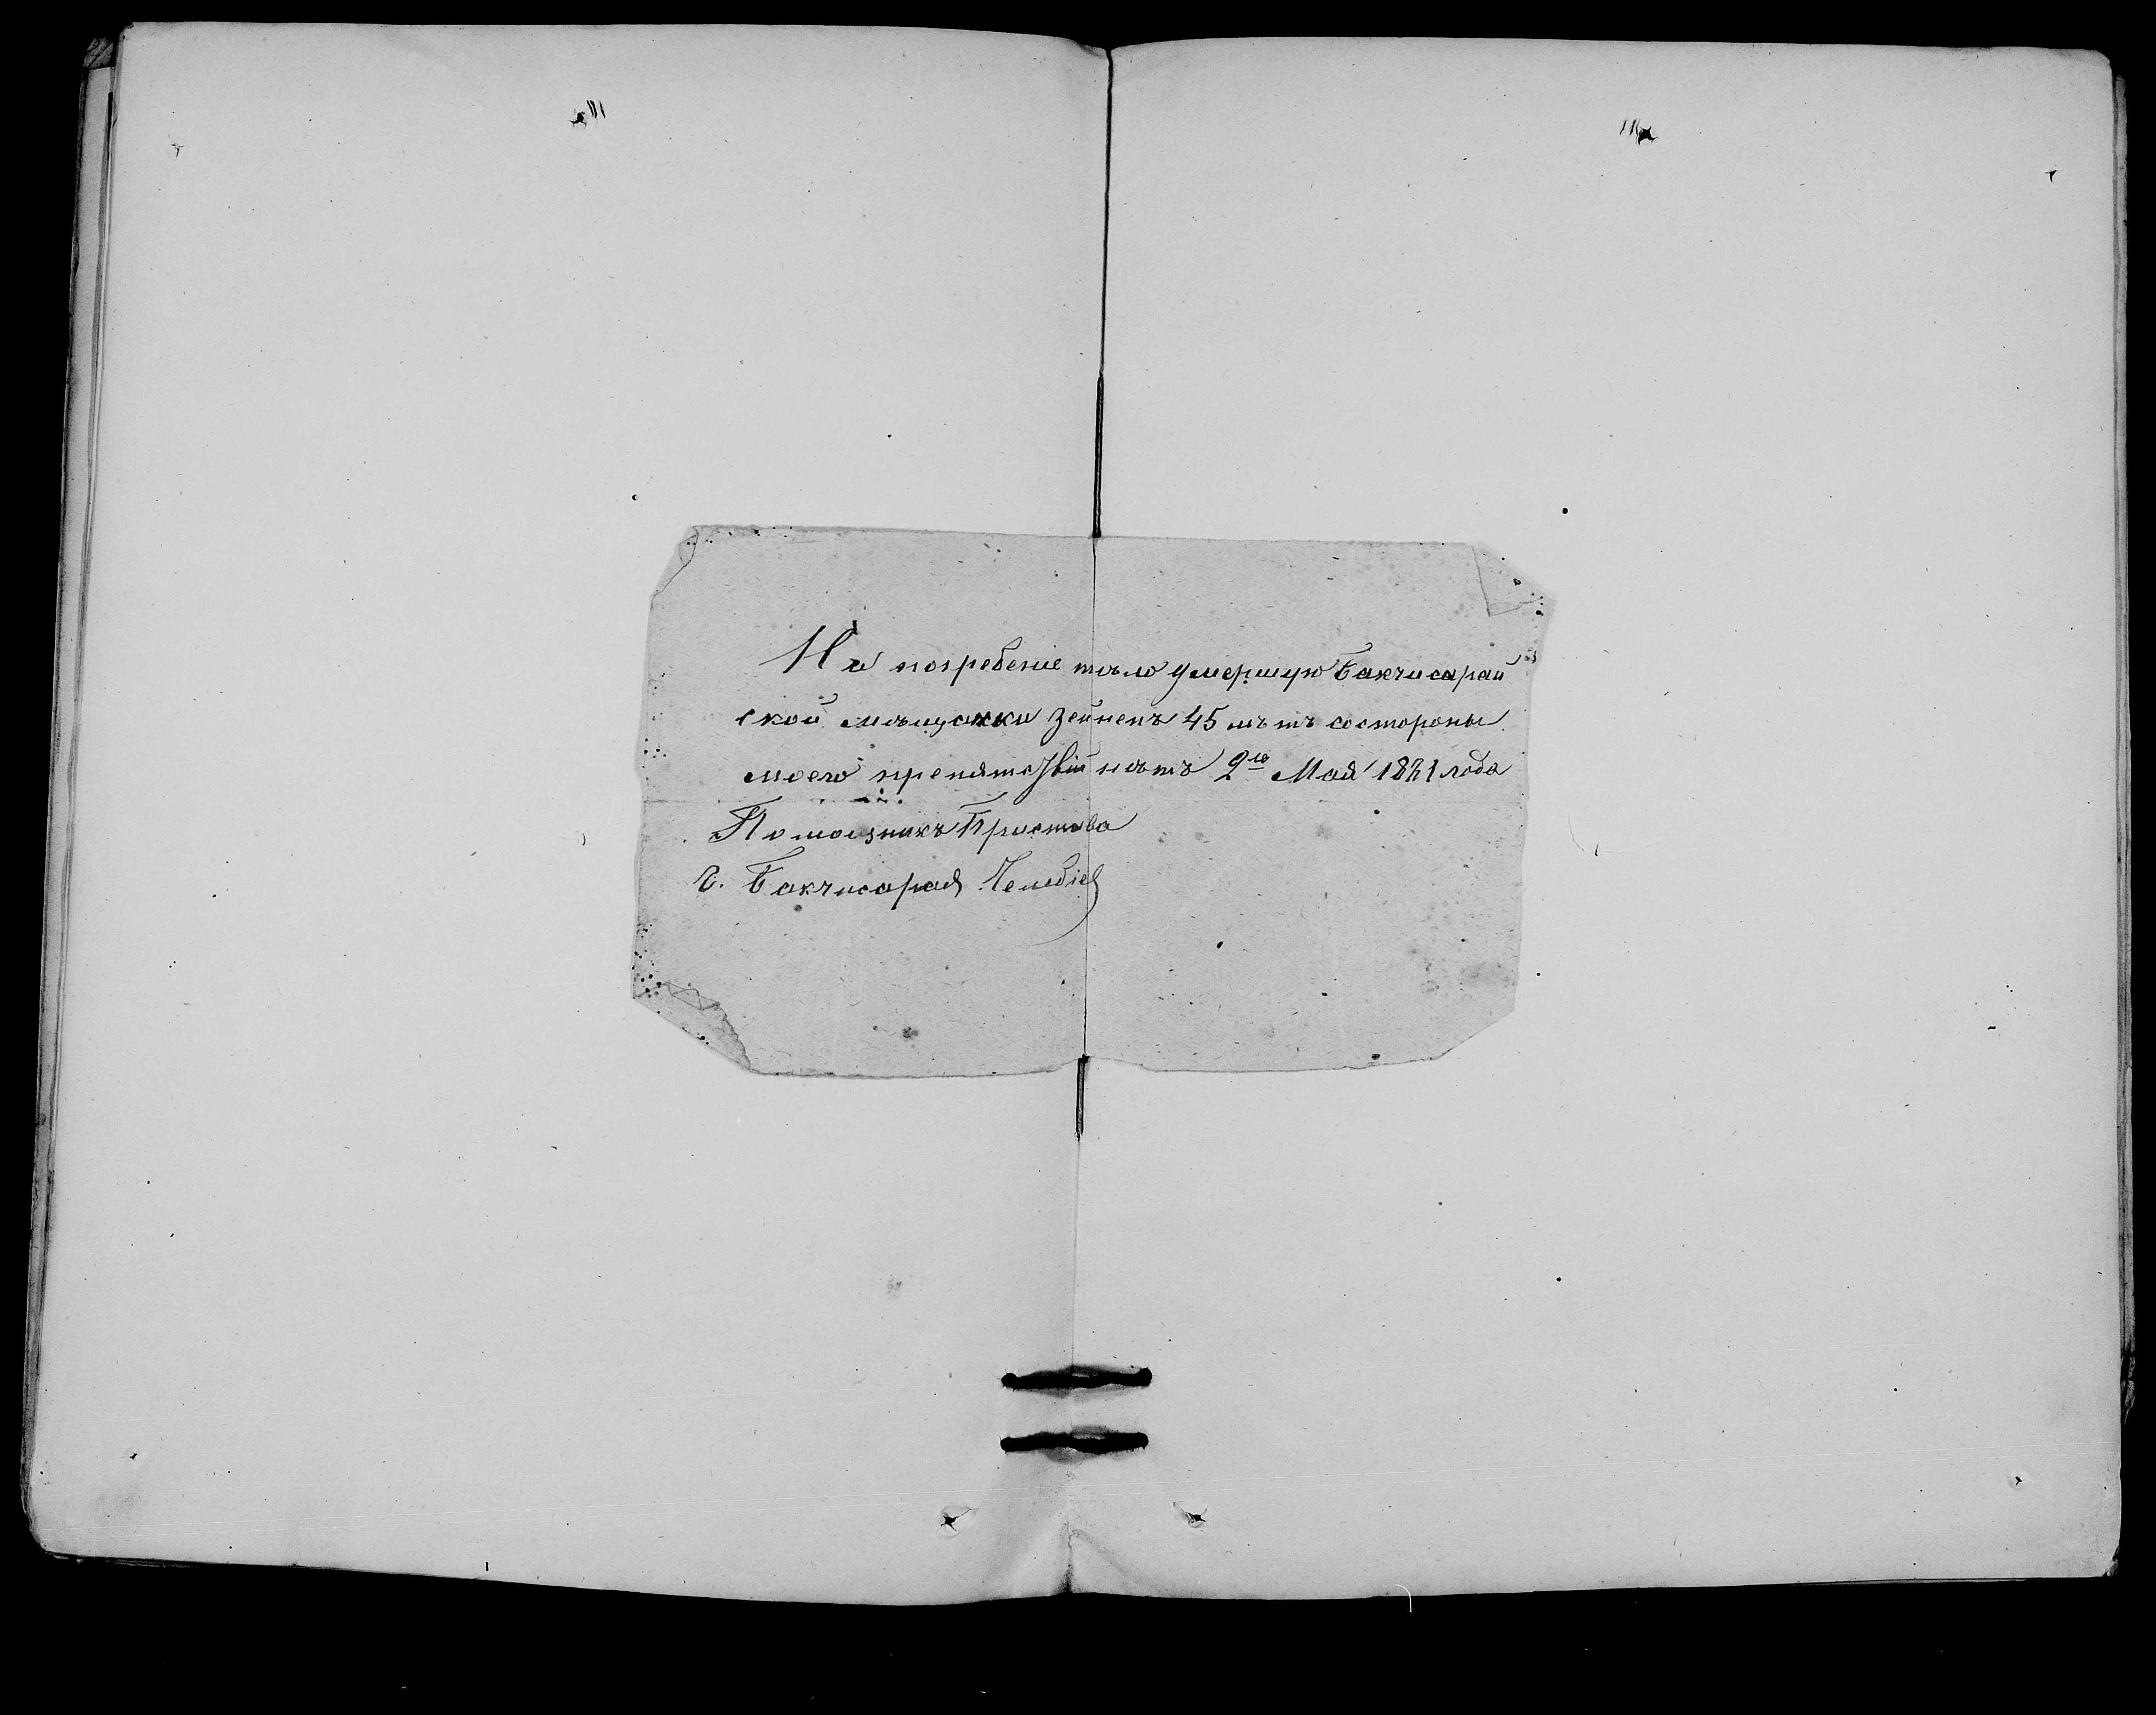 На погребение тѣло умершую Бакчисарай
ской мѣщанки Зейнепъ 45 лѣтъ состороны
моего препятствій нѣтъ 2го Мая 1871 года
Помощникъ Пристава
г. Бакчисарая